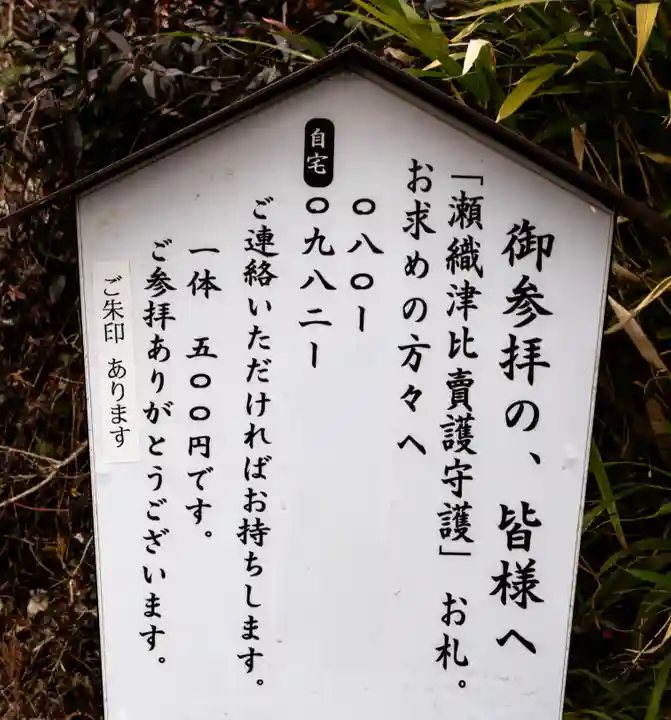 御参拝の、皆様へ
「瀬織津比賣護守護」お札。
お求めの方々へ
〇八〇ー
自宅 〇九八二ー
ご連絡いただければお持ちします。
一体 五〇〇円です。
ご参拝ありがとうございます。
ご朱印 あります